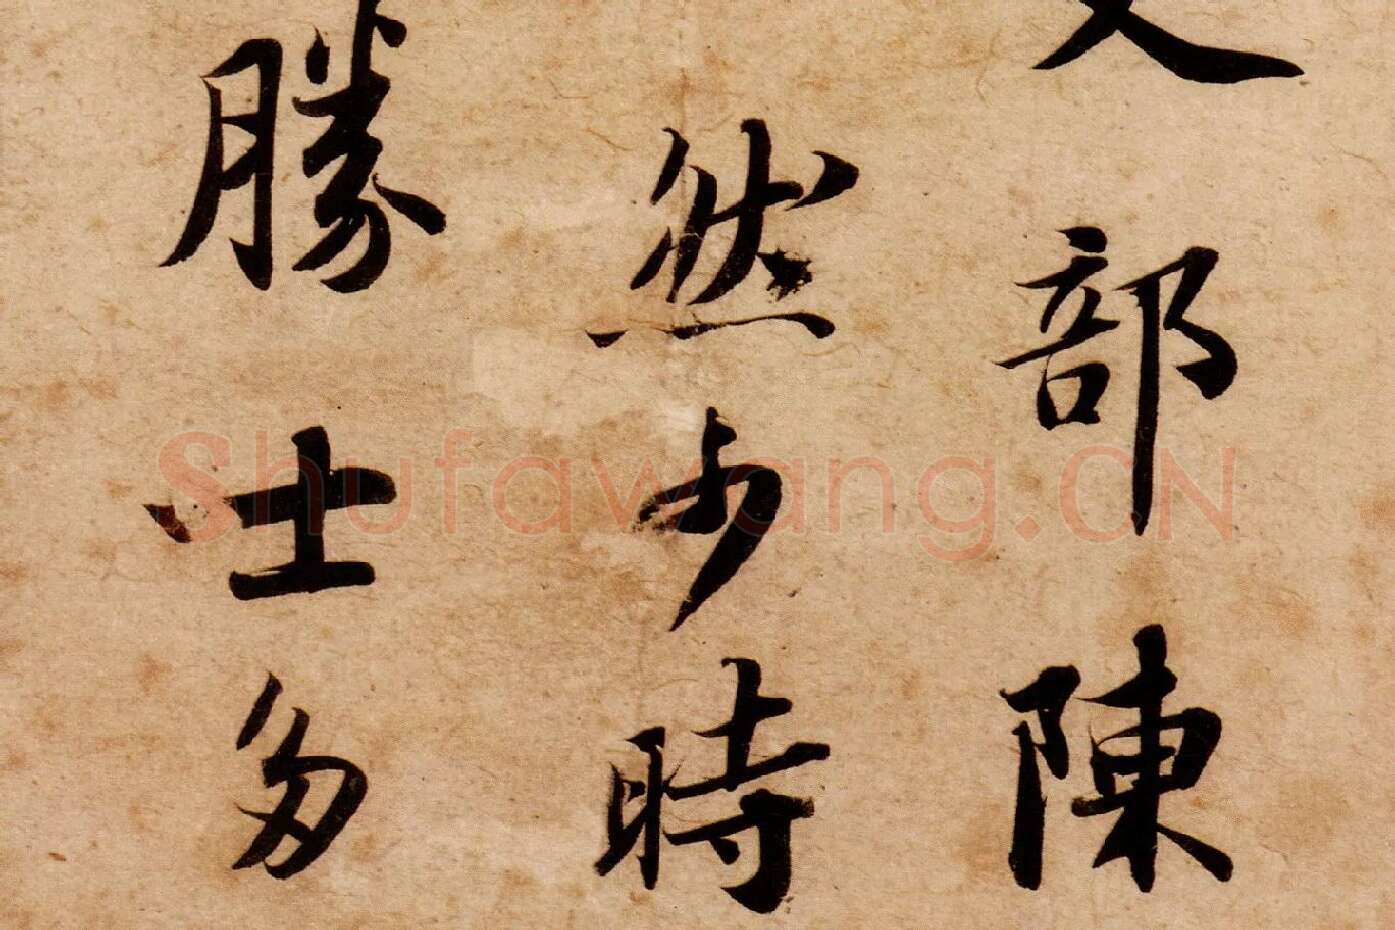 部陳
然少時
勝士多
Shufawang.CN